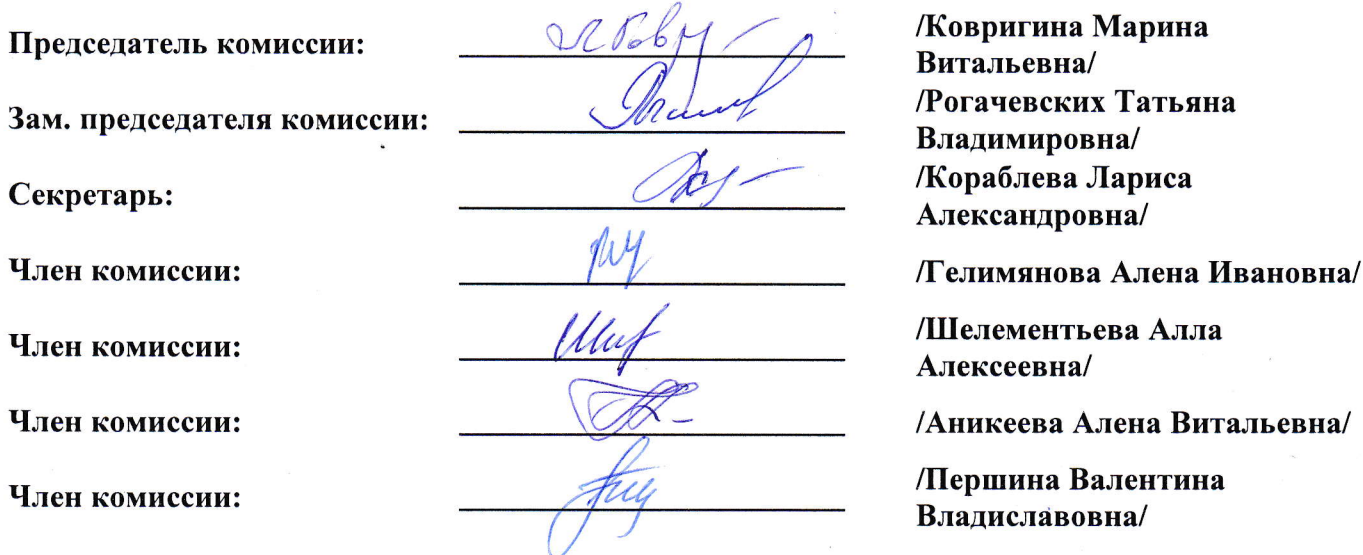 Председатель комиссии: /Ковригина Марина
Витальевна/
Зам. председателя комиссии: /Рогачевских Татьяна
Владимировна/
Секретарь: /Кораблева Лариса
Александровна/
Член комиссии: /Гелимянова Алена Ивановна/
Член комиссии: /Шелементьева Алла
Алексеевна/
Член комиссии: /Аникеева Алена Витальевна/
Член комиссии: /Першина Валентина
Владиславовна/